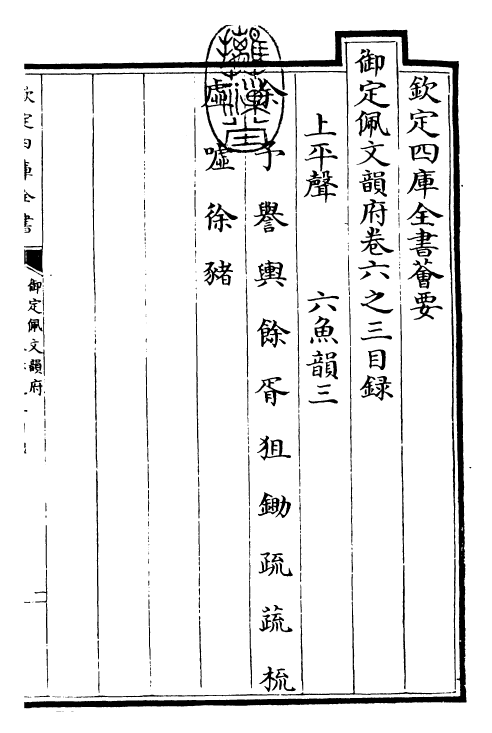 欽定四庫全書薈要
御定佩文韻府卷六之三目録
上平聲 六魚韻三
余予譽輿餘胥狙鋤疏蔬梳
虛噓徐豬
欽定四庫全書
御定佩文韻府